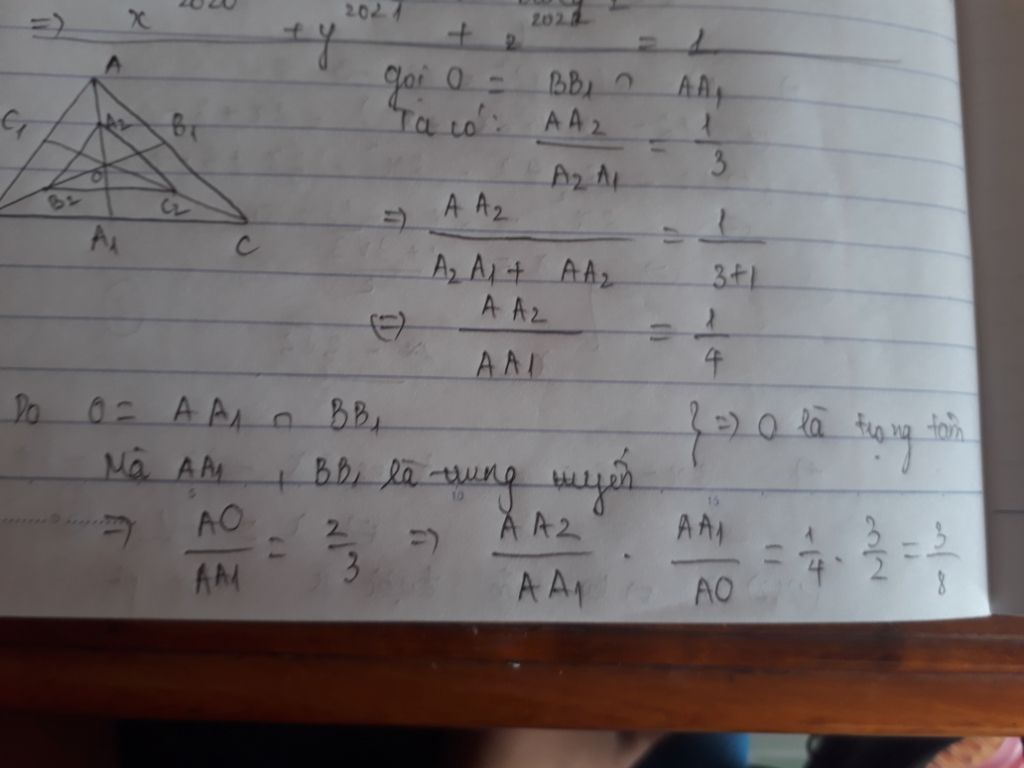 => x^2020 + y^2021 + z^2022 = 1
A
C1
A2
B1
O
B2
C2
A1
C
gọi O = BB1 ∩ AA1
Ta có: AA2 / A2A1 = 1/3
=> AA2 / (A2A1 + AA2) = 1/(3+1)
(=) AA2 / AA1 = 1/4
Do O = AA1 ∩ BB1 } => O là trọng tâm
Mà AA1 , BB1 là trung tuyến
=> AO/AA1 = 2/3 => AA2/AA1 . AA1/AO = 1/4 . 3/2 = 3/8